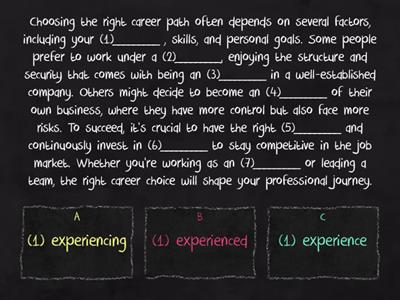 Choosing the right career path often depends on several factors,
including your (1)_________ , skills, and personal goals. Some people
prefer to work under a (2)_________, enjoying the structure and
security that comes with being an (3)_________ in a well-established
company. Others might decide to become an (4)_________ of their
own business, where they have more control but also face more
risks. To succeed, it's crucial to have the right (5)_________ and
continuously invest in (6)_________ to stay competitive in the job
market. Whether you're working as an (7)_________ or leading a
team, the right career choice will shape your professional journey.
A
(1) experiencing
B
(1) experienced
C
(1) experience